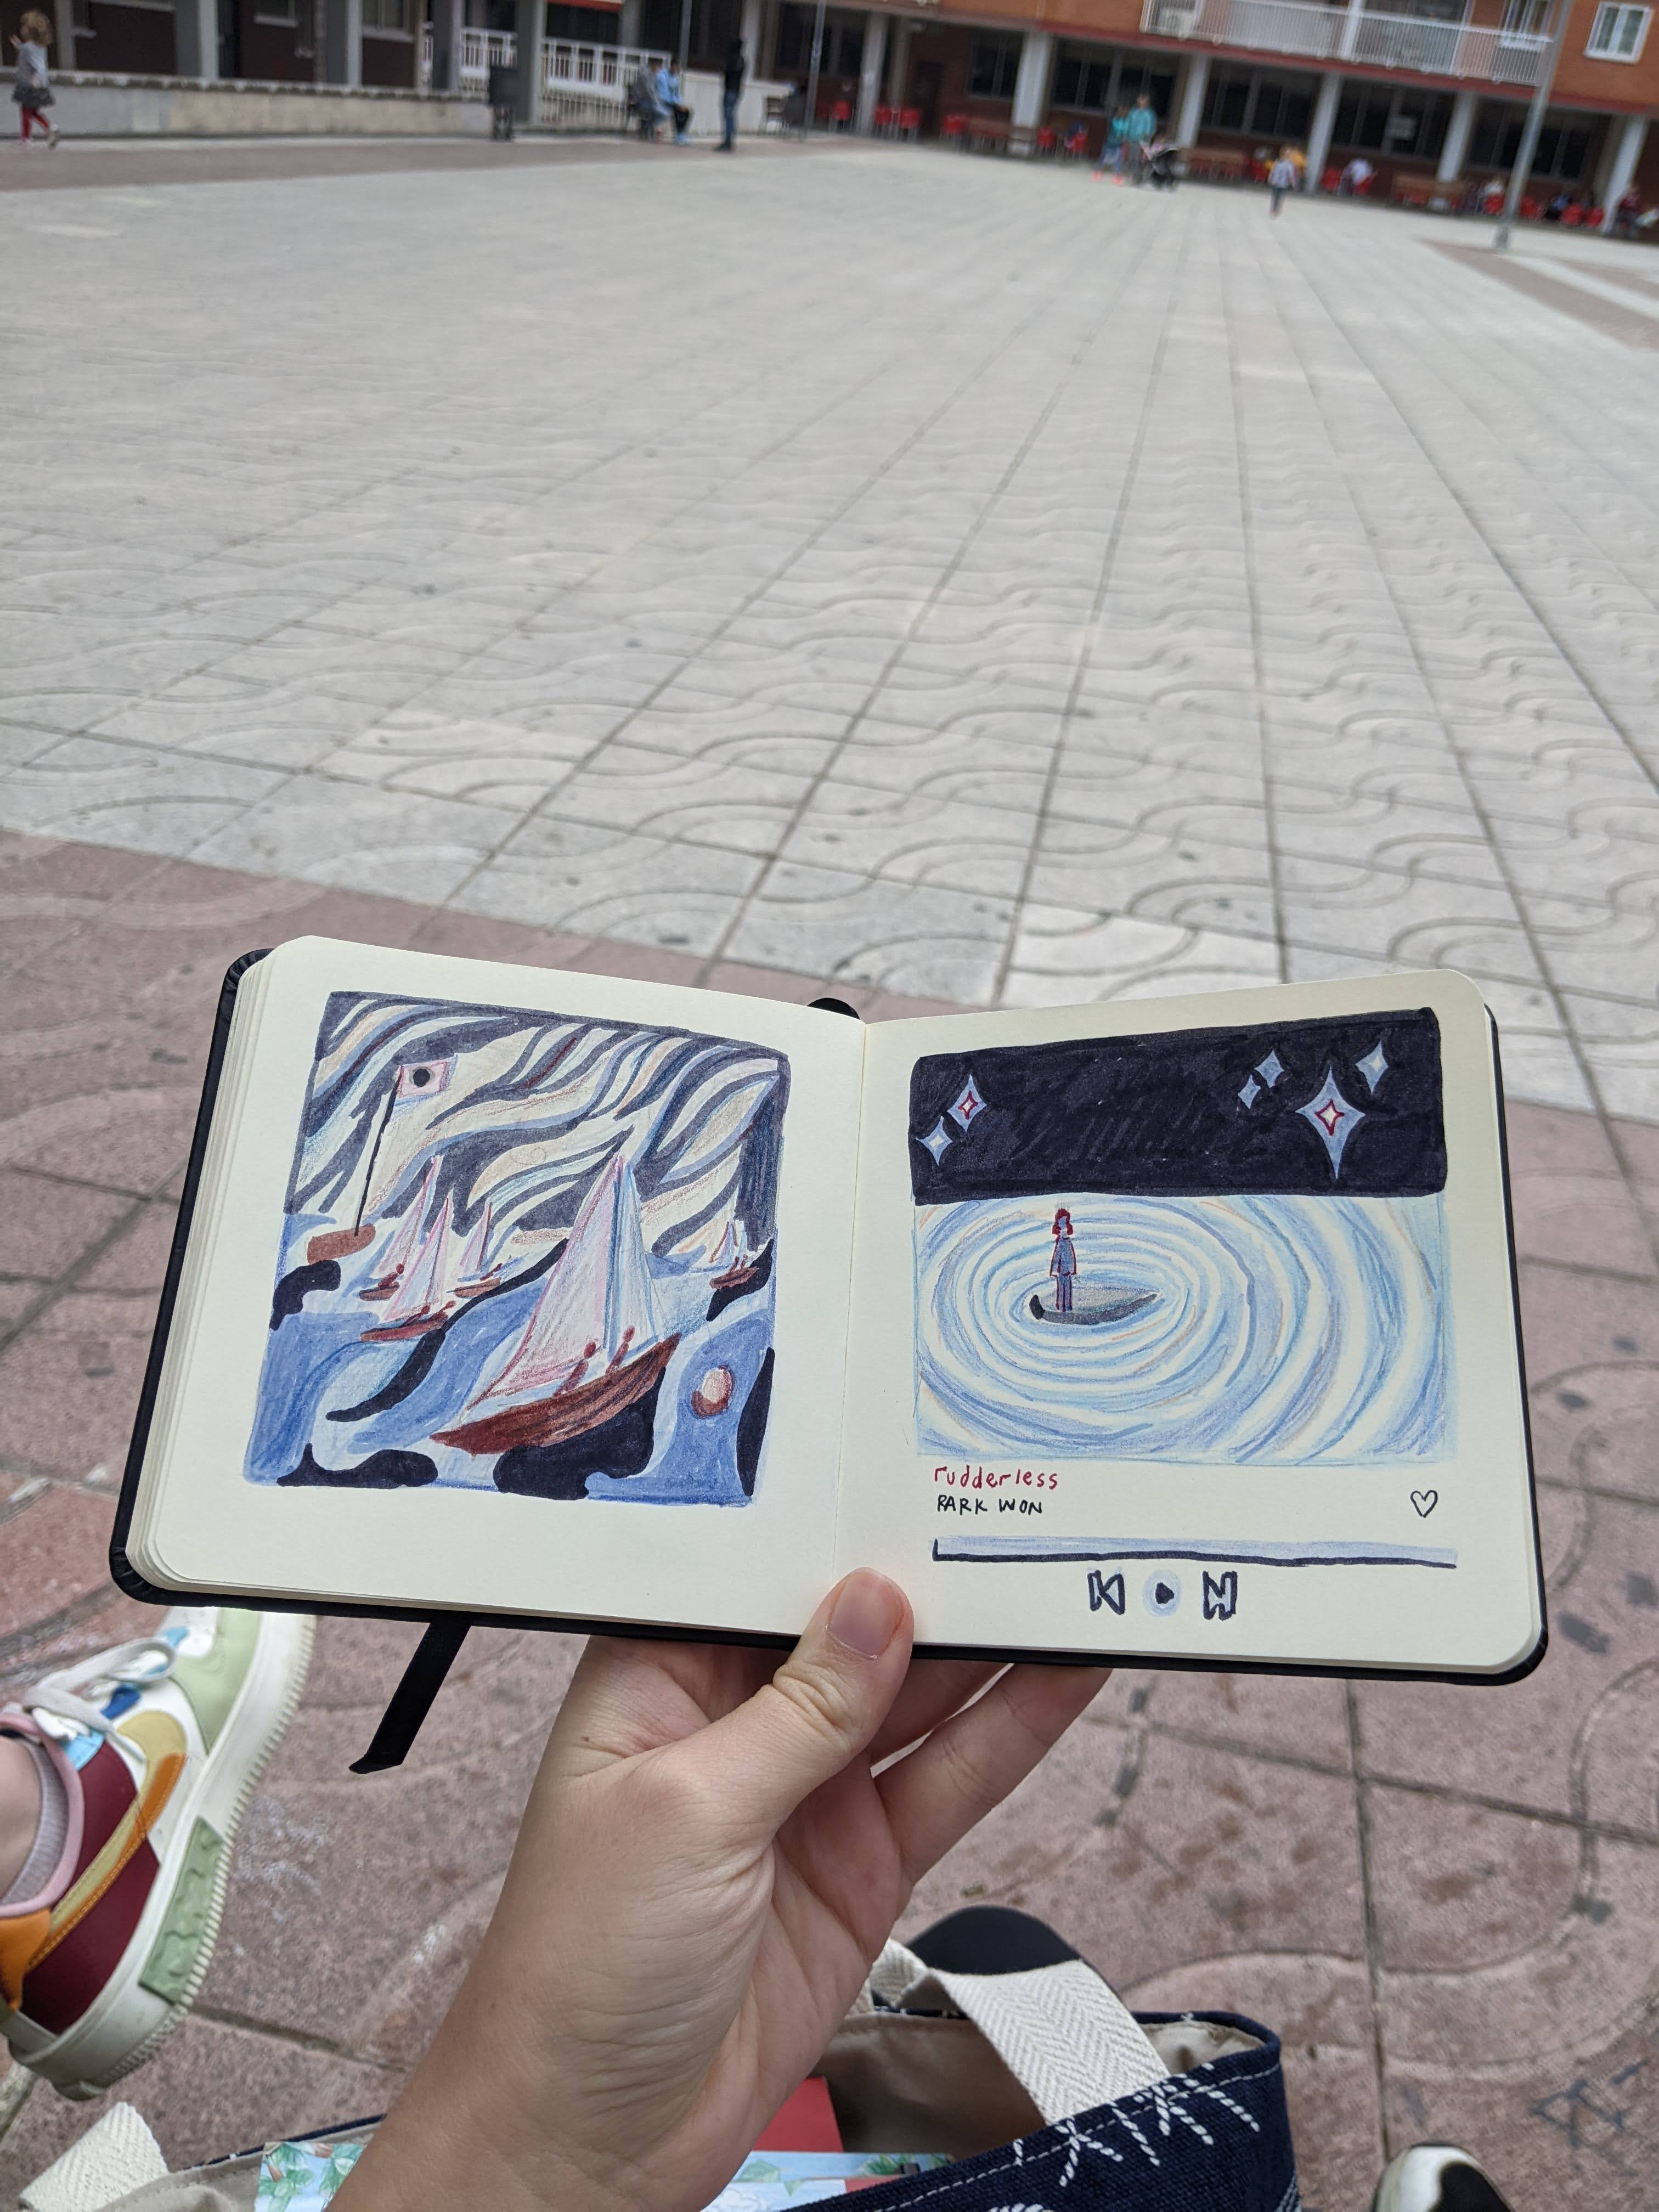 rudderless
PARK WON